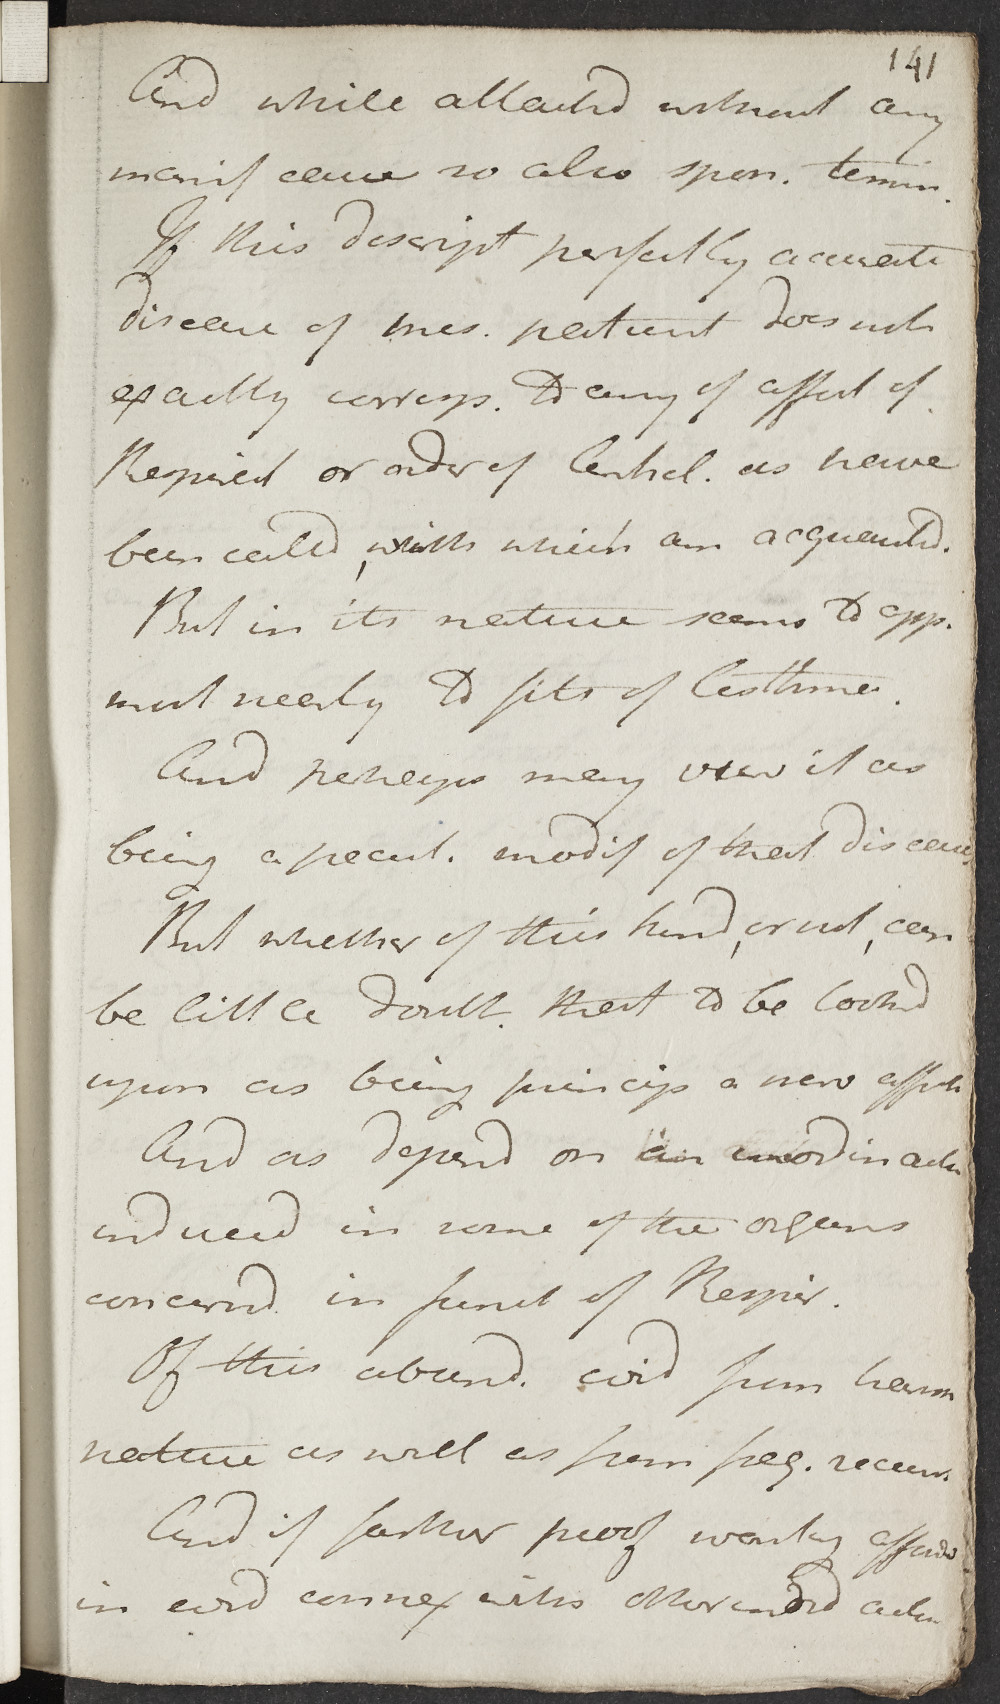 141
And while attackd without any
manif cause so also spon. termin.
If this descript perfectly accurate
disease of pres. patient does not
exactly corresp. to any of affect of
Respirat or order of Anhel. as have
been calld, with which am acquantd.
But in its nature seems to app.
most nearly to fits of Asthma.
And perhaps may view it as
being a pecul. modif of that disease
But whether of this kind, or not, can
be little doubt. that to be lookd
upon as being princip a nerv affect
And as depend on an inordin actn
inducd in some of the organs
concernd in funct of Respir.
Of this abund. evid from transn
nature as well as from freq. recurr.
And if farther proof wanting affords
in evid connex with other inord actn